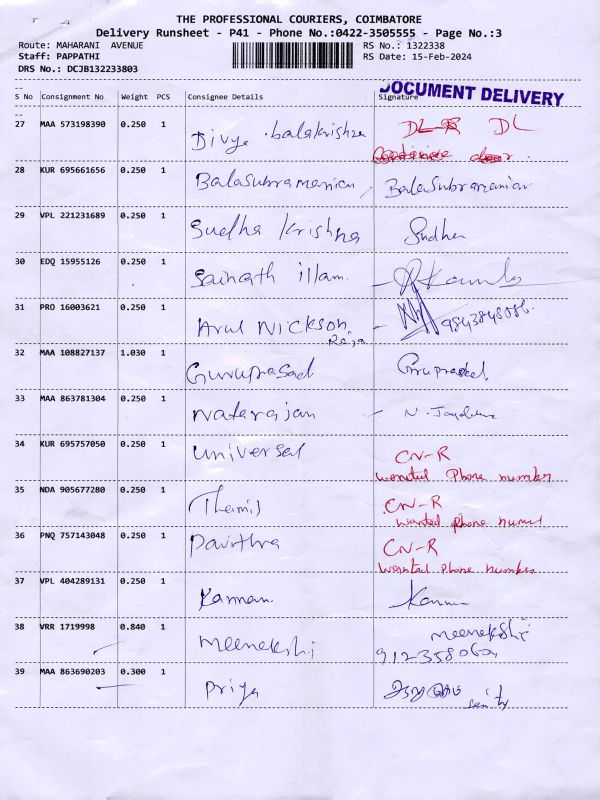 THE PROFESSIONAL COURIERS, COIMBATORE
Delivery Runsheet - P41 - Phone No.:0422-3505555 - Page No.:3
Route: MAHARANI AVENUE RS No.: 1322338
Staff: PAPPATHI RS Date: 15-Feb-2024
DRS No.: DCJB132233803
DOCUMENT DELIVERY
S No Consignment No Weight PCS Consignee Details Signature
27 MAA 573198390 0.250 1 Divya balakrishna DL DL
door.
28 KUR 695661656 0.250 1 BalaSubramanian BalaSubramanian
29 VPL 221231689 0.250 1 Sudha Krishna Sudha
30 EDQ 15955126 0.250 1 Sainath illam.
31 PRO 16003621 0.250 1 Arul NICKSON 9843848086.
Raja
32 MAA 108827137 1.030 1 Guruprasad Guruprasad
33 MAA 863781304 0.250 1 Natarajan
34 KUR 695757050 0.250 1 universal CN-R
wanted Phone number
35 NDA 905677280 0.250 1 Thamil CN-R
wanted phone
36 PNQ 757143048 0.250 1 Pavithra CN-R
wanted Phone number
37 VPL 404289131 0.250 1 Kannan
38 VRR 1719998 0.840 1 meenakshi meenakshi
9123580604
39 MAA 863690203 0.300 1 Priya